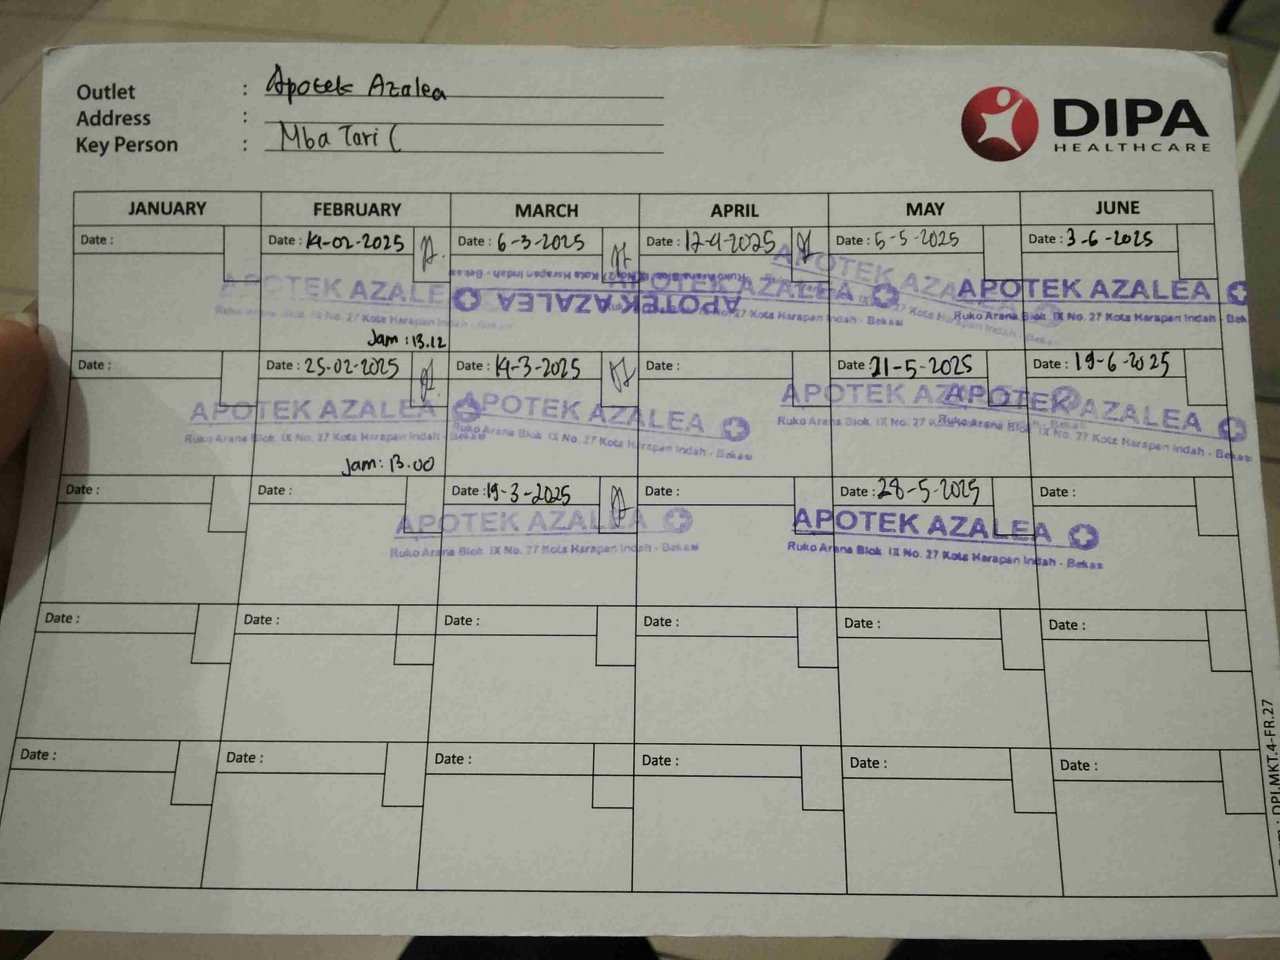 Outlet : Apotek Azalea
Address :
Key Person : Mba Tari (
DIPA
HEALTHCARE
JANUARY FEBRUARY MARCH APRIL MAY JUNE
Date : Date : 14-02-2025 Date : 6-3-2025 Date : 12-4-2025 Date : 5-5-2025 Date : 3-6-2025
APOTEK AZALE APOTEK AZALEA APOTEK AZALEA APOTEK AZALEA APOTEK AZALEA
Ruko Arana Blok IX No. 27 Kota Harapan Indah - Bekasi
Jam : 13.12
Date : Date : 25-02-2025 Date : 14-3-2025 Date : Date : 21-5-2025 Date : 19-6-2025
APOTEK AZALEA APOTEK AZALEA APOTEK AZA APOTEK AZALEA
Ruko Arana Blok IX No. 27 Kota Harapan Indah - Bekasi Ruko Arana Blok IX No. 27 Kota Harapan Indah - Bekasi Ruko Arana Blok IX No. 27 Kota Harapan Indah - Bekasi
Jam : 13.00
Date : Date : Date : 19-3-2025 Date : Date : 28-5-2025 Date :
APOTEK AZALEA APOTEK AZALEA
Ruko Arana Blok IX No. 27 Kota Harapan Indah - Bekasi Ruko Arana Blok IX No. 27 Kota Harapan Indah - Bekasi
Date : Date : Date : Date : Date : Date :
Date : Date : Date : Date : Date : Date :
: DPI.MKT.4-FR.27